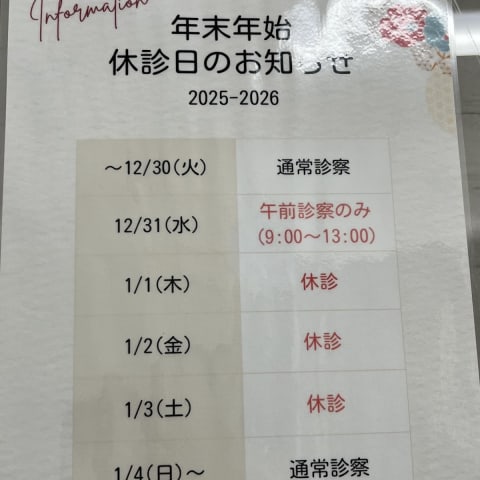 Information
年末年始
休診日のお知らせ
2025-2026
～12/30(火) 通常診察
12/31(水) 午前診察のみ
(9:00～13:00)
1/1(木) 休診
1/2(金) 休診
1/3(土) 休診
1/4(日)～ 通常診察